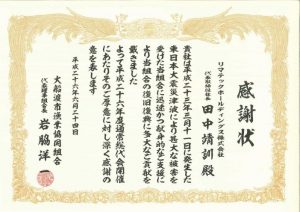 感謝状
リマテックホールディングス株式会社
代表取締役社長
田中靖訓殿
貴社は平成二十三年三月十一日に発生した
東日本大震災津波により甚大な被害を
受けた当組合に迅速かつ献身的なご支援に
より当組合の復旧復興に多大なご貢献を
戴きました
よって平成二十六年度通常総代会開催
にあたりそのご厚意に対し深く感謝の
意を表します
平成二十六年六月二十四日
大船渡市漁業協同組合
代表理事組合長
岩脇洋一